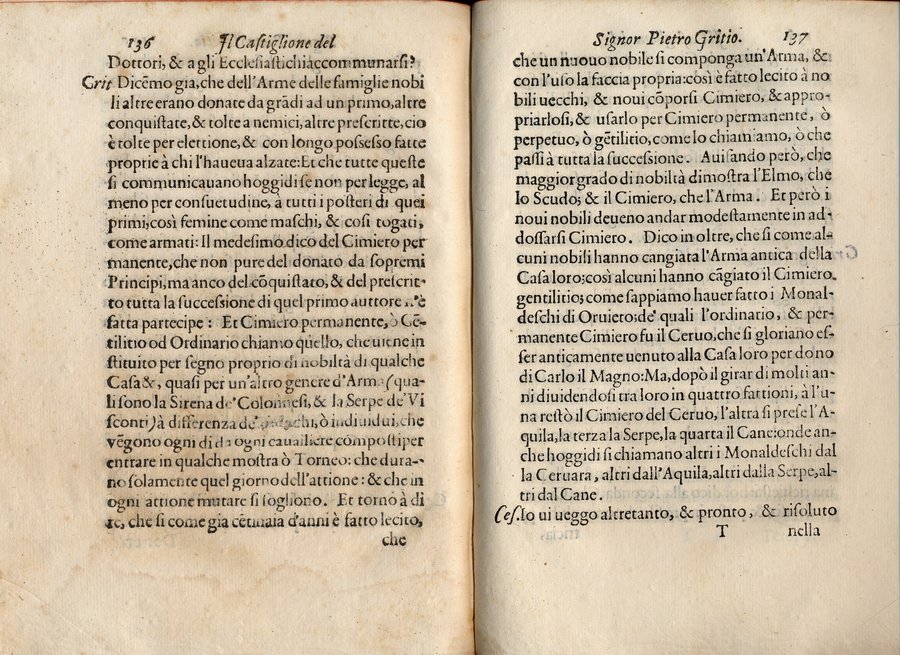 136 Il Castiglione del
Dottori, & a gli Ecclesiastichi accommunarsi?
Grit Dicẽmo gia, che dell'Arme delle famiglie nobi
li altre erano donate da grãdi ad un primo, altre
conquistate, & tolte a nemici, altre prescritte, cio
è tolte per elettione, & con longo possesso fatte
proprie à chi l'haueua alzate: Et che tutte queste
si communicauano hoggidi se non per legge, al
meno per consuetudine, à tutti i posteri di quei
primi; così femine come maschi, & cosi togati,
come armati: Il medesimo dico del Cimiero per
manente, che non pure del donato da sopremi
Principi, ma anco del cõquistato, & del prescrit-
to tutta la successione di quel primo auttore n'è
fatta partecipe: Et Cimiero permanente, ò Gẽ-
tilitio od Ordinario chiamo quello, che uiene in
stituito per segno proprio di nobiltà di qualche
Casa &, quasi per un'altro genere d'Arma (qua-
li sono la Sirena de' Colonnesi, & la Serpe de' Vi
sconti) à differenza de' ò indiuidui, che
vẽgono ogni di da ogni cauailiere composti per
entrare in qualche mostra ò Torneo: che dura-
no solamente quel giorno dell'attione: & che in
ogni attione mutare si sogliono. Et torno à di
re, che si come gia cẽtinaia d'anni è fatto lecito,
che
Signor Pietro Gritio. 137
che un nuouo nobile si componga un'Arma, &
con l'uso la faccia propria: così è fatto lecito à no
bili uecchi, & noui cõporsi Cimiero, & appro-
priarlosi, & usarlo per Cimiero permanente, ò
perpetuo, ò gẽtilitio, come lo chiamiamo, ò che
passi à tutta la successione. Auisando però, che
maggior grado di nobiltà dimostra l'Elmo, che
lo Scudo; & il Cimiero, che l'Arma. Et però i
noui nobili deueno andar modestamente in ad-
dossarsi Cimiero. Dico in oltre, che si come al-
cuni nobili hanno cangiata l'Arma antica della
Casa loro; così alcuni hanno cãgiato il Cimiero
gentilitio; come sappiamo hauer fatto i Monal-
deschi di Oruieto; de' quali l'ordinario, & per-
manente Cimiero fu il Ceruo, che si gloriano es-
ser anticamente uenuto alla Casa loro per dono
di Carlo il Magno: Ma, dopò il girar di molti an-
ni diuidendosi tra loro in quattro fattioni, à l'u-
na restò il Cimiero del Ceruo, l'altra si prese l'A-
quila, la terza la Serpe, la quarta il Cane: onde an-
che hoggidi si chiamano altri i Monaldeschi dal
la Ceruara, altri dall'Aquila, altri dalla Serpe, al-
tri dal Cane.
Ces. Io ui ueggo altretanto, & pronto, & risoluto
T nella